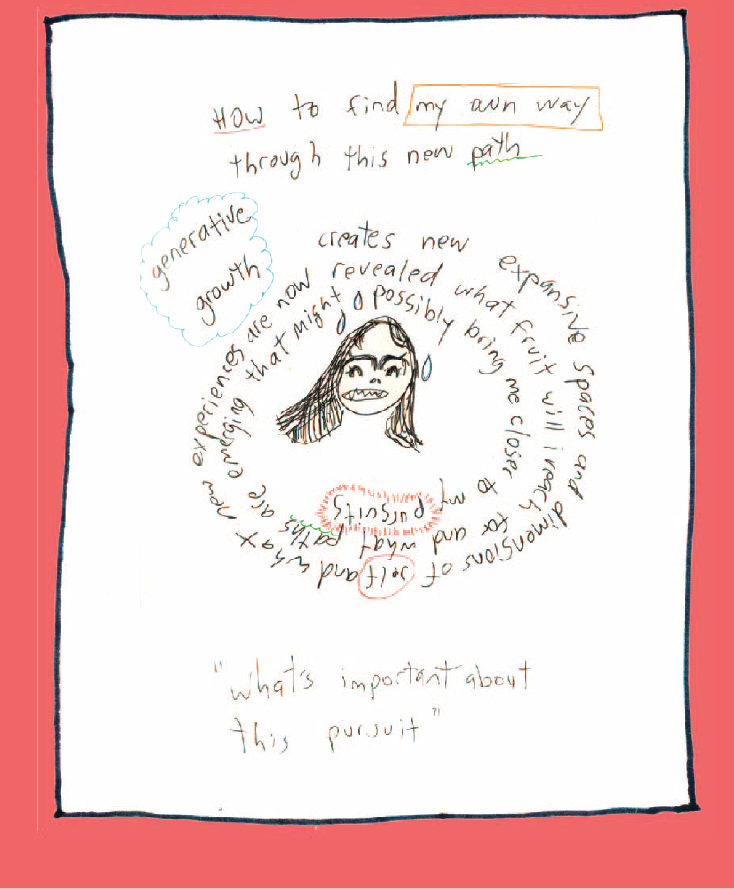 HOW to find my own way
through this new path
generative
growth
creates new expansive spaces and dimensions of self and what new experiences are now revealed what fruit will i reach for and what paths are emerging that might possibly bring me closer to my pursuits
"what's important about
this pursuit"